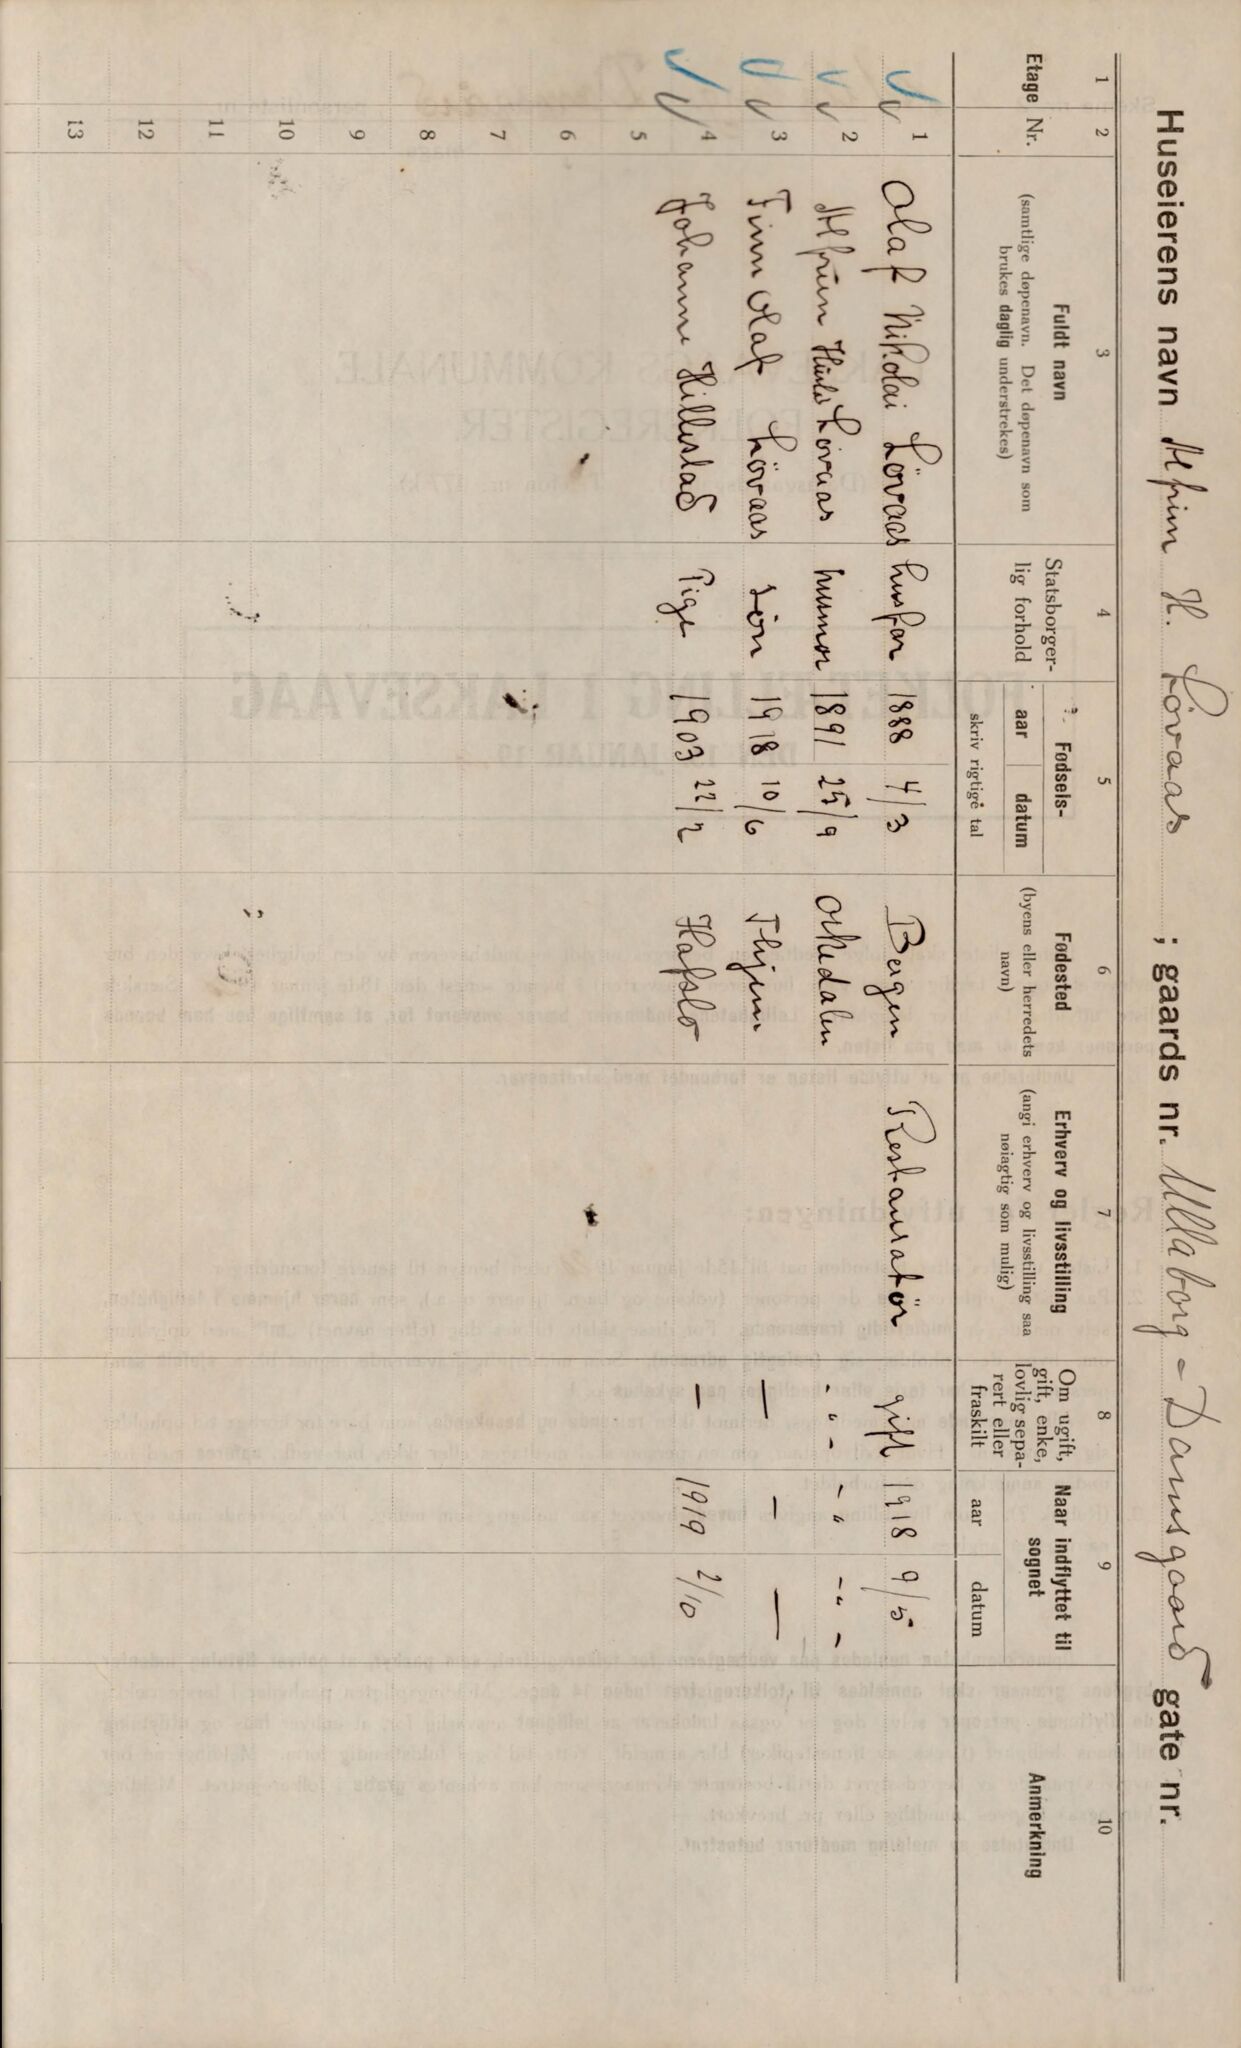 Huseierens navn Alfrun H. Lövaas ; gaards nr. Ullaborg - Damsgaard gate nr.
1 2 3 4 5 6 7 8 9 10
Etage Nr. Fuldt navn (samtlige døpenavn. Det døpenavn som brukes daglig understrekes) Statsborger-lig forhold Fødsels- aar datum skriv rigtige tal Fødested (byens eller herredets navn) Erhverv og livsstilling (angi erhverv og livsstilling saa nøiagtig som mulig) Om ugift, gift, enke, lovlig sepa-rert eller fraskilt Naar indflyttet til sognet aar datum Anmerkning
1 Olaf Nikolai Lövaas husfar 1888 4/3 Bergen Restauratör gift 1918 9/5
2 Lövaas husmor 1891 25/9 Orkedalen - " - - " - - " -
3 Finn Olaf Lövaas sön 1918 10/6 Thjem — — —
4 Johanne Hillestad Pige 1903 22/2 Hafslo — 1919 2/10
5
6
7
8
9
10
11
12
13